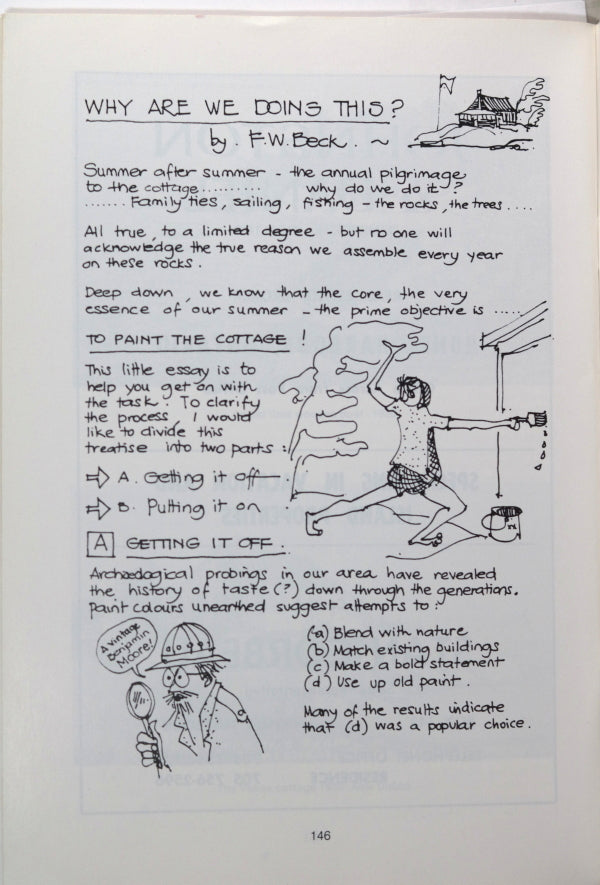 WHY ARE WE DOING THIS?
by. F.W. Beck. ~
Summer after summer - the annual pilgrimage
to the cottage.......... why do we do it?
....... Family ties, sailing, fishing - the rocks, the trees....
All true, to a limited degree - but no one will
acknowledge the true reason we assemble every year
on these rocks.
Deep down, we know that the core, the very
essence of our summer - the prime objective is .....
TO PAINT THE COTTAGE!
This little essay is to
help you get on with
the task. To clarify
the process, I would
like to divide this
treatise into two parts:
A. Getting it off
B. Putting it on
A GETTING IT OFF.
Archæological probings in our area have revealed
the history of taste (?) down through the generations.
Paint colours unearthed suggest attempts to:
A vintage
Benjamin
Moore!
(a) Blend with nature
(b) Match existing buildings
(c) Make a bold statement
(d) Use up old paint.
Many of the results indicate
that (d) was a popular choice.
146